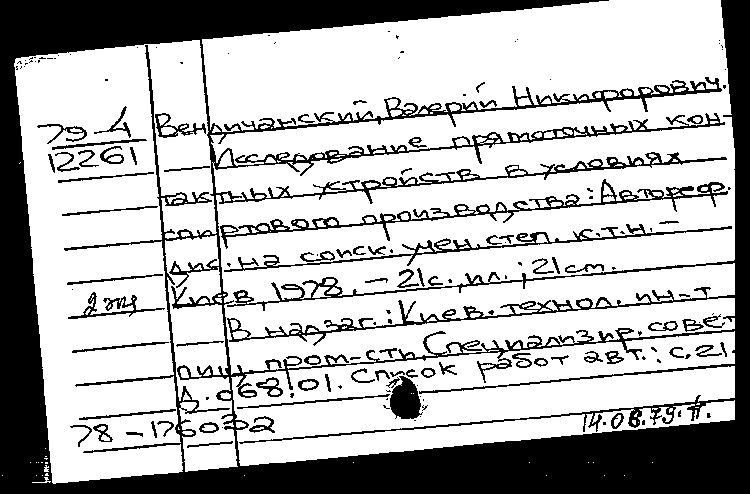 79-4
12261
Вендичанский, Валерий Никифорович.
Исследование прямоточных кон-
тактных устройств в условиях
спиртового производства: Автореф.
дис. на соиск. учен. степ. к.т.н. —
Киев, 1978. — 21с., ил.; 21 см.
2 экз
В надзаг.: Киев. технол. ин-т
пищ. пром-сти. Специализир. совет
Д. 068.01. Список работ авт.: с. 21.
78-176032
14.08.79. П.